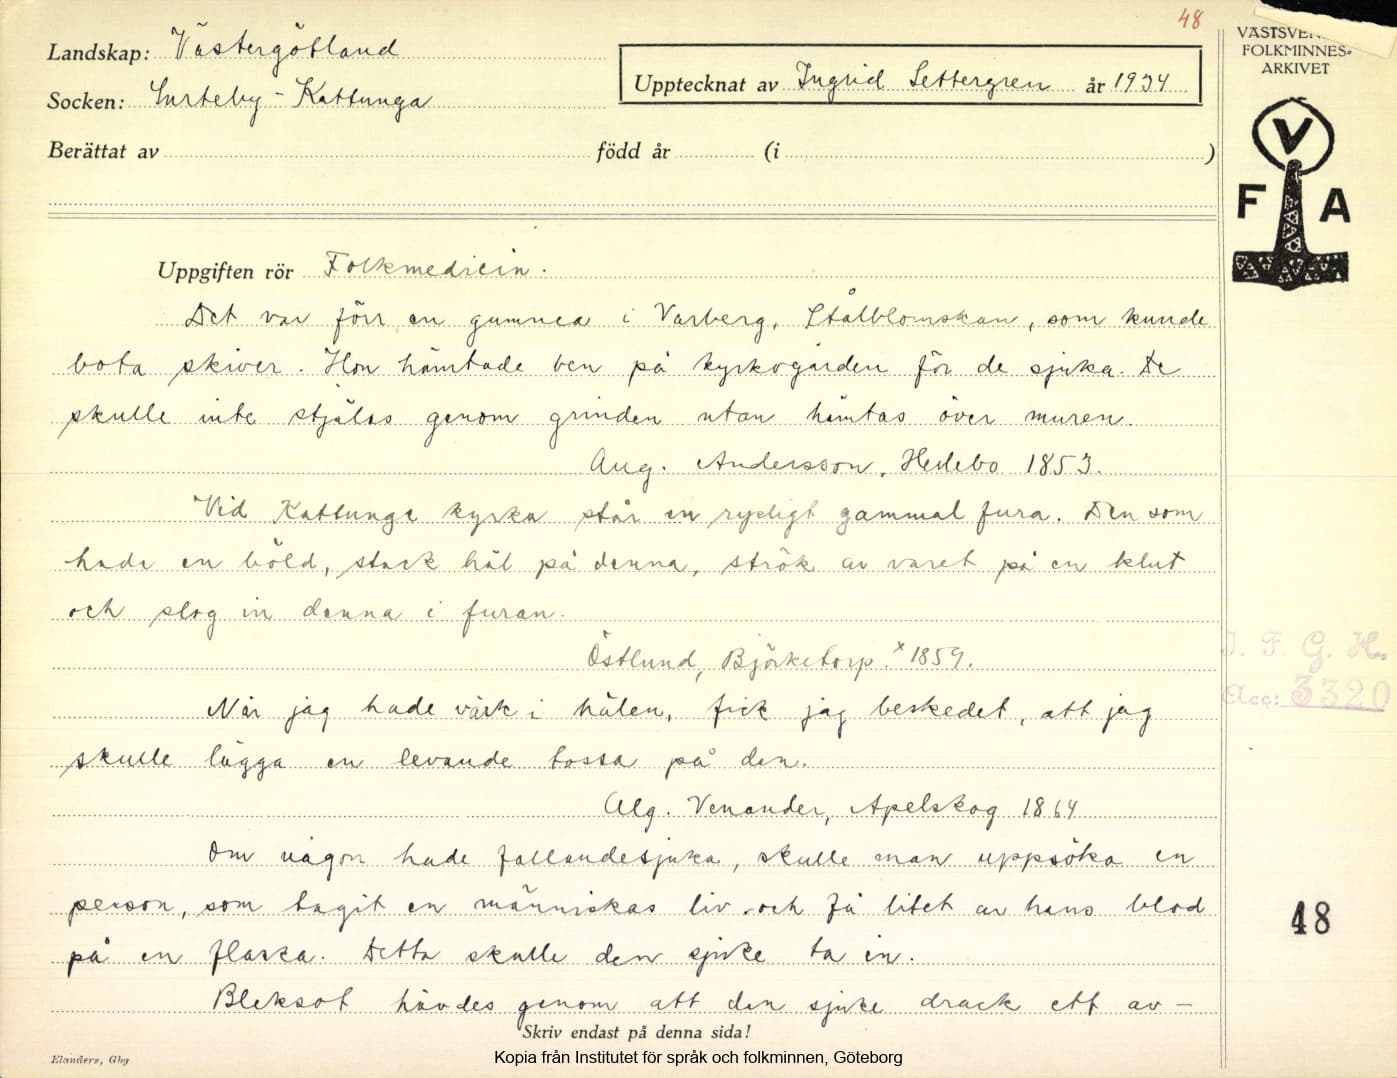 48
Landskap: Västergötland
Socken: Surteby - Kattunga
Upptecknat av Ingrid Settergren år 1934
Berättat av född år (i )
VÄSTSVEN
FOLKMINNES-
ARKIVET
V
F A
Uppgiften rör Folkmedicin.
Det var förr en gumma i Varberg, Stålblomskan, som kunde
bota skiver. Hon hämtade ben på kyrkogården för de sjuka. De
skulle inte stjälas genom grinden utan hämtas över muren.
Aug. Andersson, Hedebo 1853.
Vid Kattunga kyrka står en rysligt gammal fura. Den som
hade en böld, stack hål på denna, strök av varet på en klut
och slog in denna i furan.
Östlund, Björketorp. * 1859.
När jag hade värk i hälen, fick jag beskedet, att jag
skulle lägga en levande tossa på den.
Alg. Venander, Apelskog 1864
Om någon hade fallandesjuka, skulle man uppsöka en
person, som tagit en människas liv och få litet av hans blod
på en flaska. Detta skulle den sjuke ta in.
Bleksot hävdes genom att den sjuke drack ett av-
I. F. G. H.
Acc: 3320
48
Skriv endast på denna sida!
Elanders, Gbg
Kopia från Institutet för språk och folkminnen, Göteborg